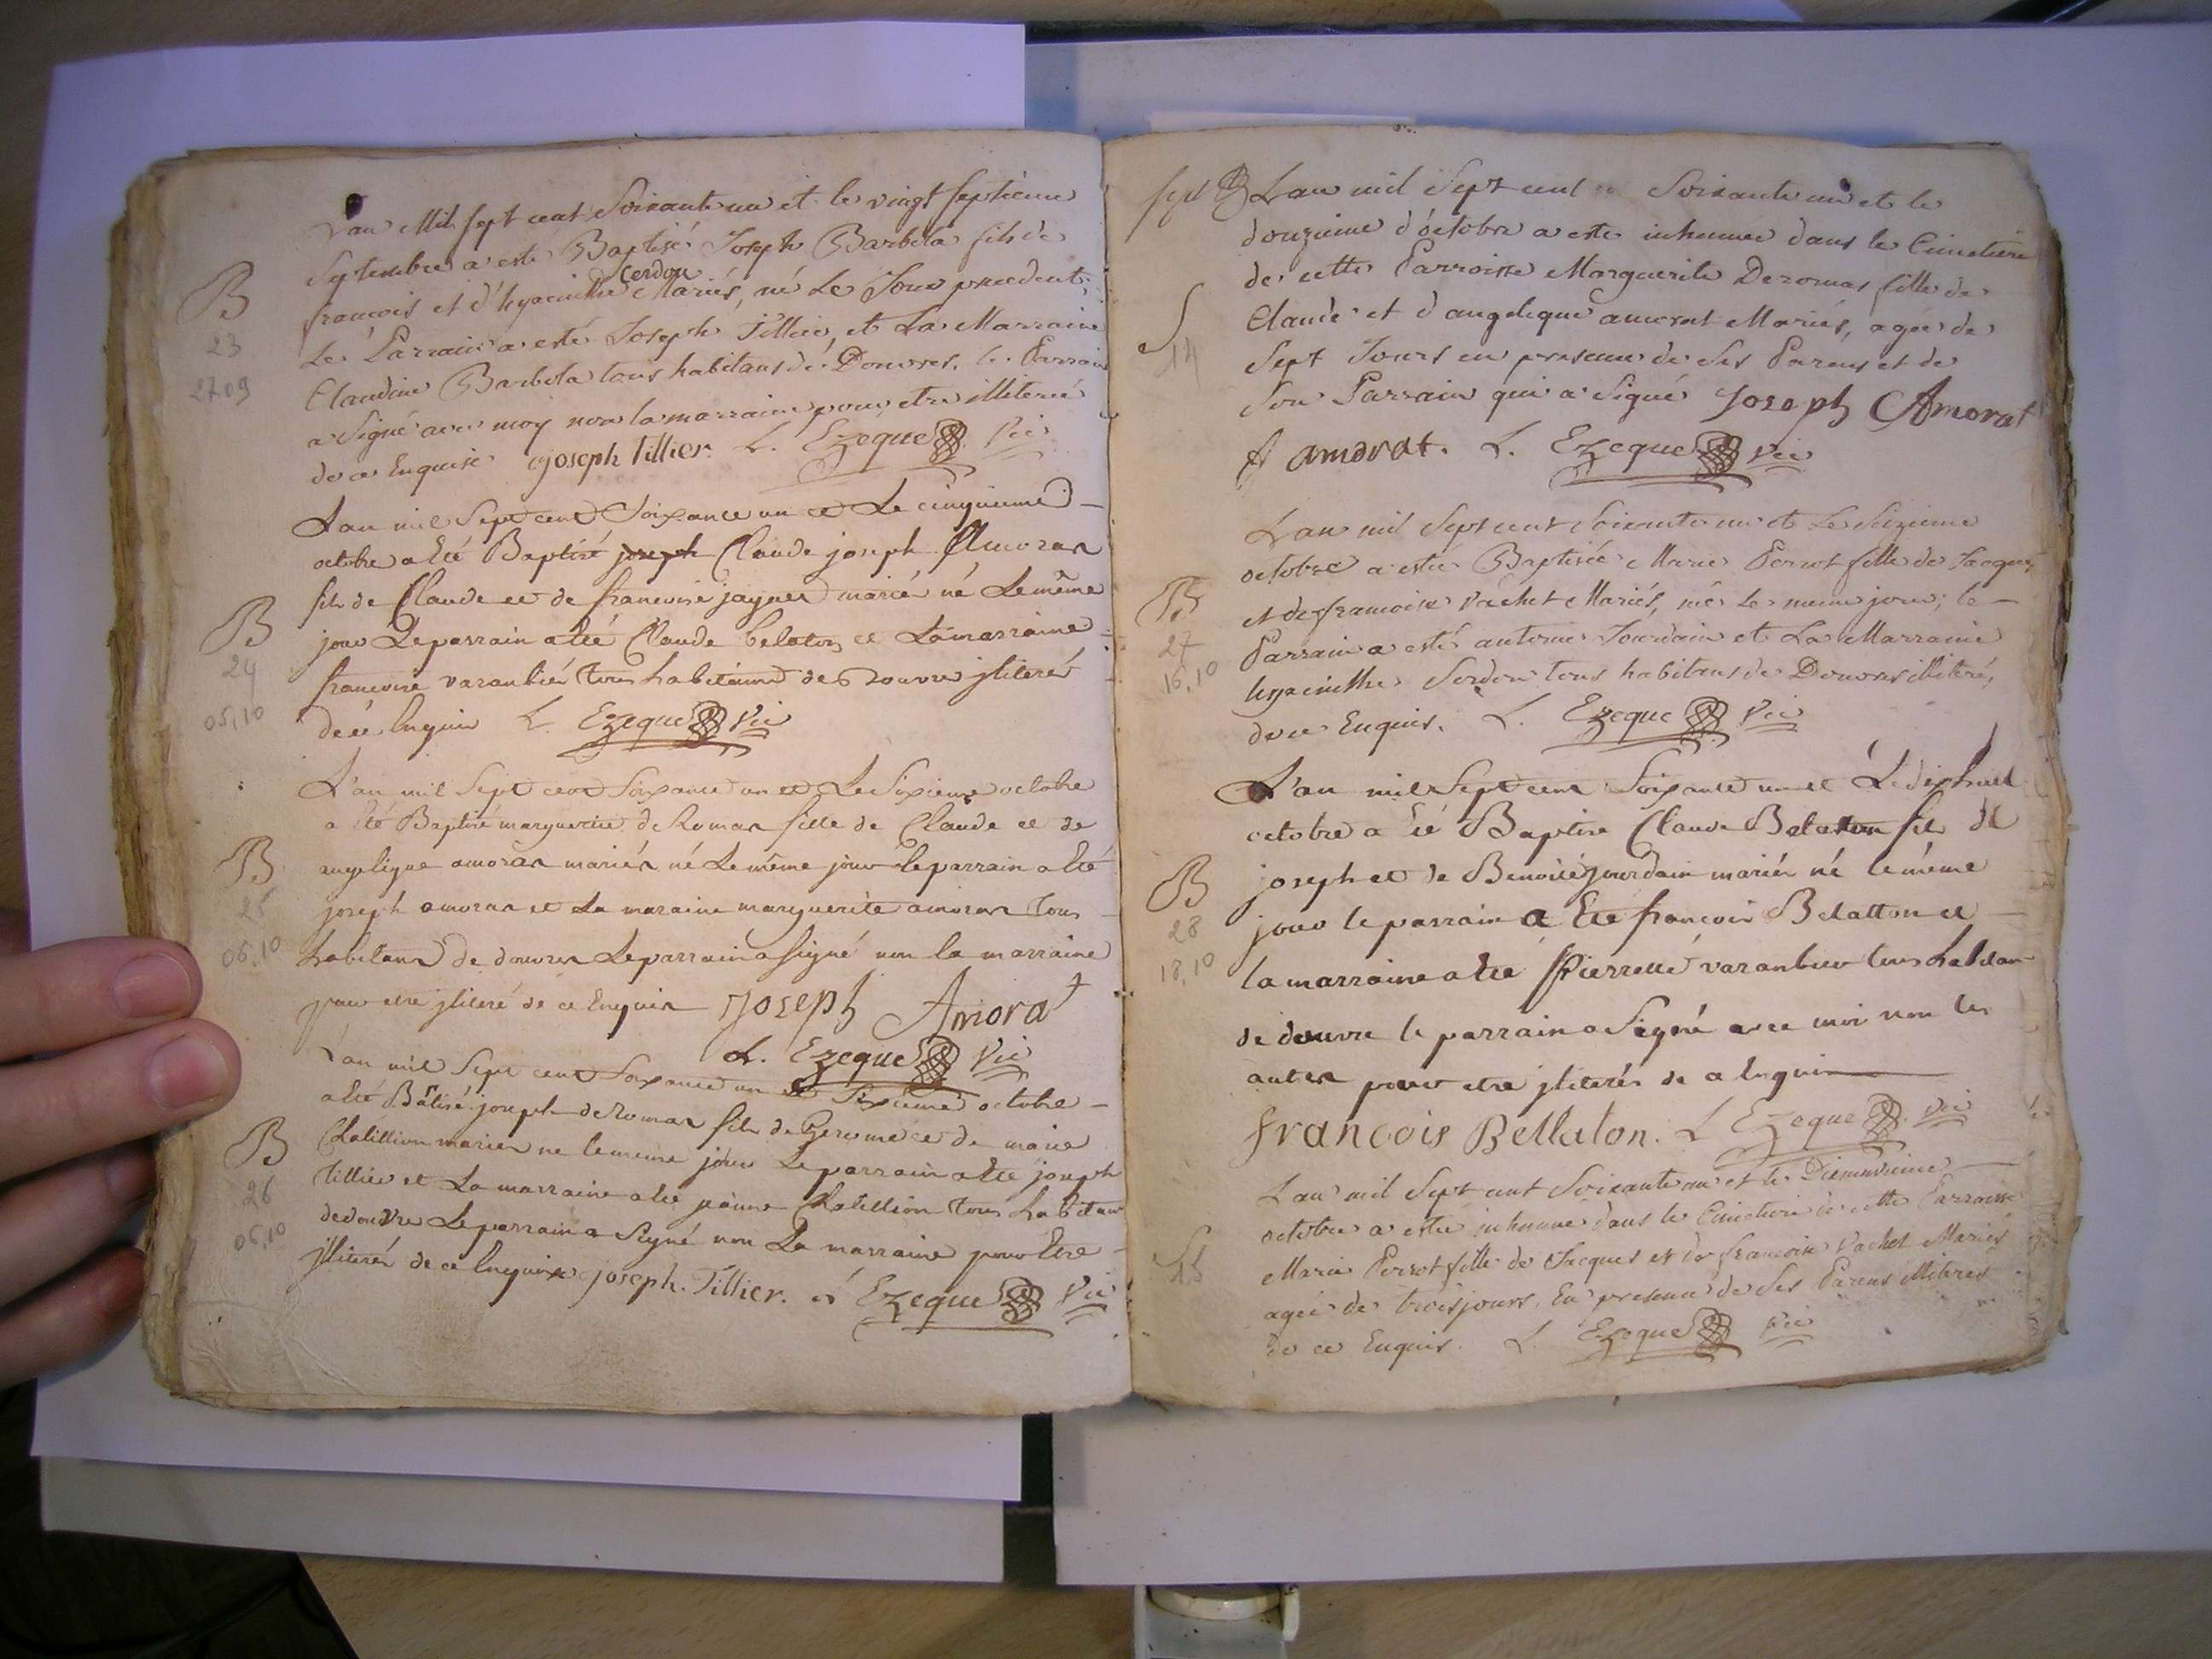 L'an Mil sept cent Soixante un et le vingt septieme
Septembre a esté Baptisé Joseph Barbola fils de
francois et d'hyacinthe Cerdon Mariés, né Le Jour precedent;
B
23
27.09
Le Parrain a esté Joseph Tillier, et La Marraine
Claudine Barbola tous habitans de Douvres. le Parrain
a Signé avec moy non la marraine pour etre illiterée
de ce Enquise Joseph Tillier. L. Ezeque Vic
L'an mil Sept cent Soixante un et Le cinquieme
octobre a été Baptisé joseph Claude joseph Amorat
fils de Claude et de francoise jayner mariés né Le même
B
24
05,10
jour Le parrain a été Claude belaton et La marraine
francoise varanbier tous habitans de Douvre jliterés
de ce Enquis L. Ezeque Vic
L'an mil Sept cent Soixante un et Le Sixieme octobre
a été Baptisé marguerite de Romas fille de Claude et de
B
25
06,10
angelique amorat mariés né Le même jour le parrain a été
joseph amorat et La maraine marguerite amorat tous
habitans de douvres Le parrain a signé non la marraine
pour etre jliteré de ce Enquis Joseph Amorat
L. Ezeque Vic
L'an mil Sept cent Soixante un et Sixieme octobre
a été Bâtisé joseph de Romas fils de Gerome et de marie
B
26
06,10
Chatillion mariés né le meme jour Le parrain a été joseph
Tillier et La marraine a été jeanne Chatillion tous habitans
de douvre Le parrain a Signé non La marraine pour Etre
jlliterés de ce Enquise joseph. Tillier. Ezeque Vic
L'an mil Sept cent Soixante un et le
douzieme d'octobre a esté inhumée dans le Cimetiere
de cette Parroisse Marguerite Deromas fille de
S
14
Claude et d'angelique amorat Mariés, agée de
Sept Jours en presence de Ses Parens et de
Son Parrain qui a Signé Joseph Amorat
amorat. L. Ezeque Vic
L'an mil Sept cent Soixante un et Le Seizieme
octobre a esté Baptisée Marie Perrot fille de Jacques
B
27
16,10
et de francoise Vachet Mariés, née le meme jour; le
Parrain a esté antoine Jourdain et La Marraine
hyacinthe Serdon tous habitans de Douvres illiterés,
de ce Enquis. L. Ezeque Vic
L'an mil Sept cent Soixante un et Le dixhuit
octobre a été Baptisé Claude Belaton fils de
B
28
18,10
joseph et de Benoite jourdain mariés né le même
jour le parrain a Eté francois Belatton et
la marraine a été Pierrette varanbier tous habitans
de douvre le parrain a Signé avec moi non les
autres pour etre jliterés de ce Enquis
francois Bellaton. L Ezeque Vic
L'an mil Sept cent Soixante un et le Dixneuvieme
octobre a esté inhumée dans le Cimetiere de cette Parroisse
S
15
Marie Perrot fille de Jacques et de francoise Vachet Mariés
agée de trois jours. En presence de Ses Parens illiterés
de ce Enquis. L. Ezeque Vic